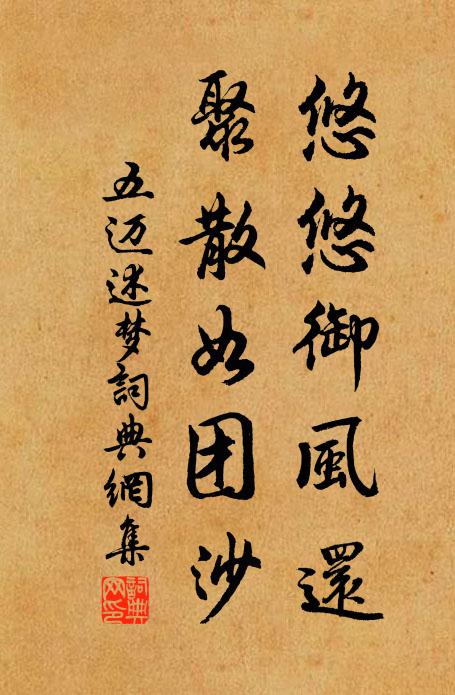 悠悠御風還
聚散如团沙
五迈迷梦詞典網集
詞典網印